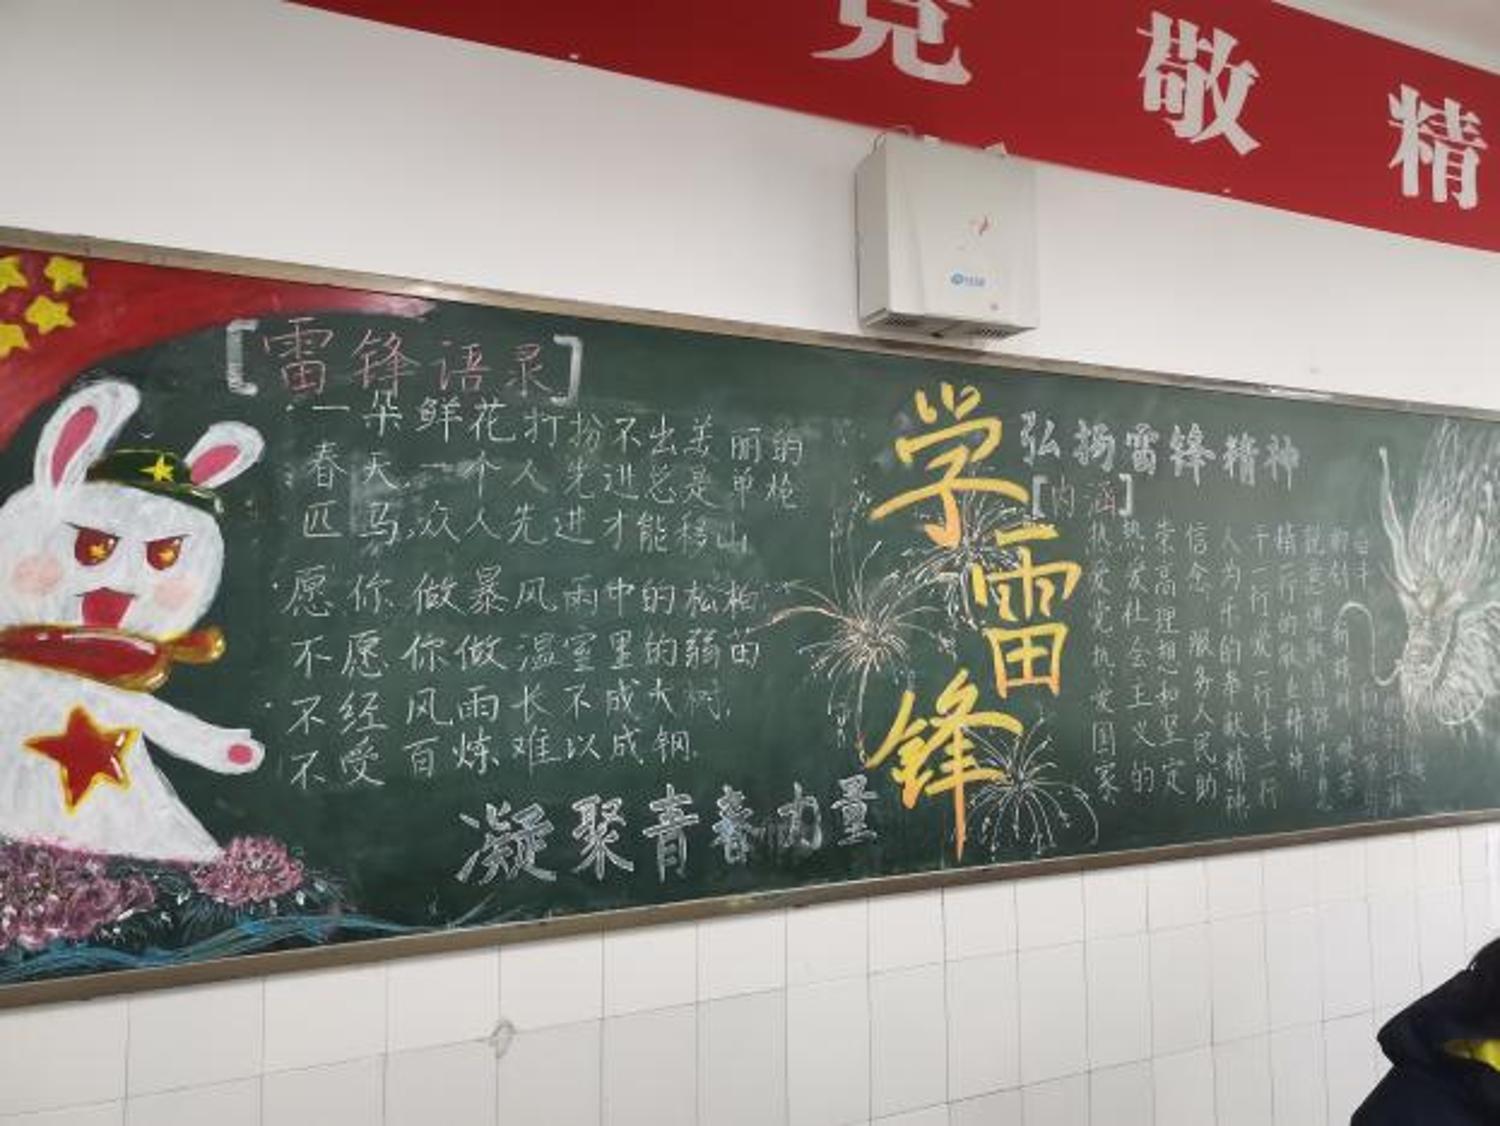 竞 敬 精
[雷锋语录]
·一朵鲜花打扮不出美丽的
春天,一个人先进总是单枪
匹马,众人先进才能移山
·愿你做暴风雨中的松柏
不愿你做温室里的弱苗
·不经风雨长不成大树,
不受百炼难以成钢
凝聚青春力量
学
雷
锋
弘扬雷锋精神
[内涵]
热爱党热爱国家
热爱社会主义的
崇高理想和坚定
信念 服务人民助
人为乐的奉献精神
干一行爱一行专一行
精一行的敬业精神